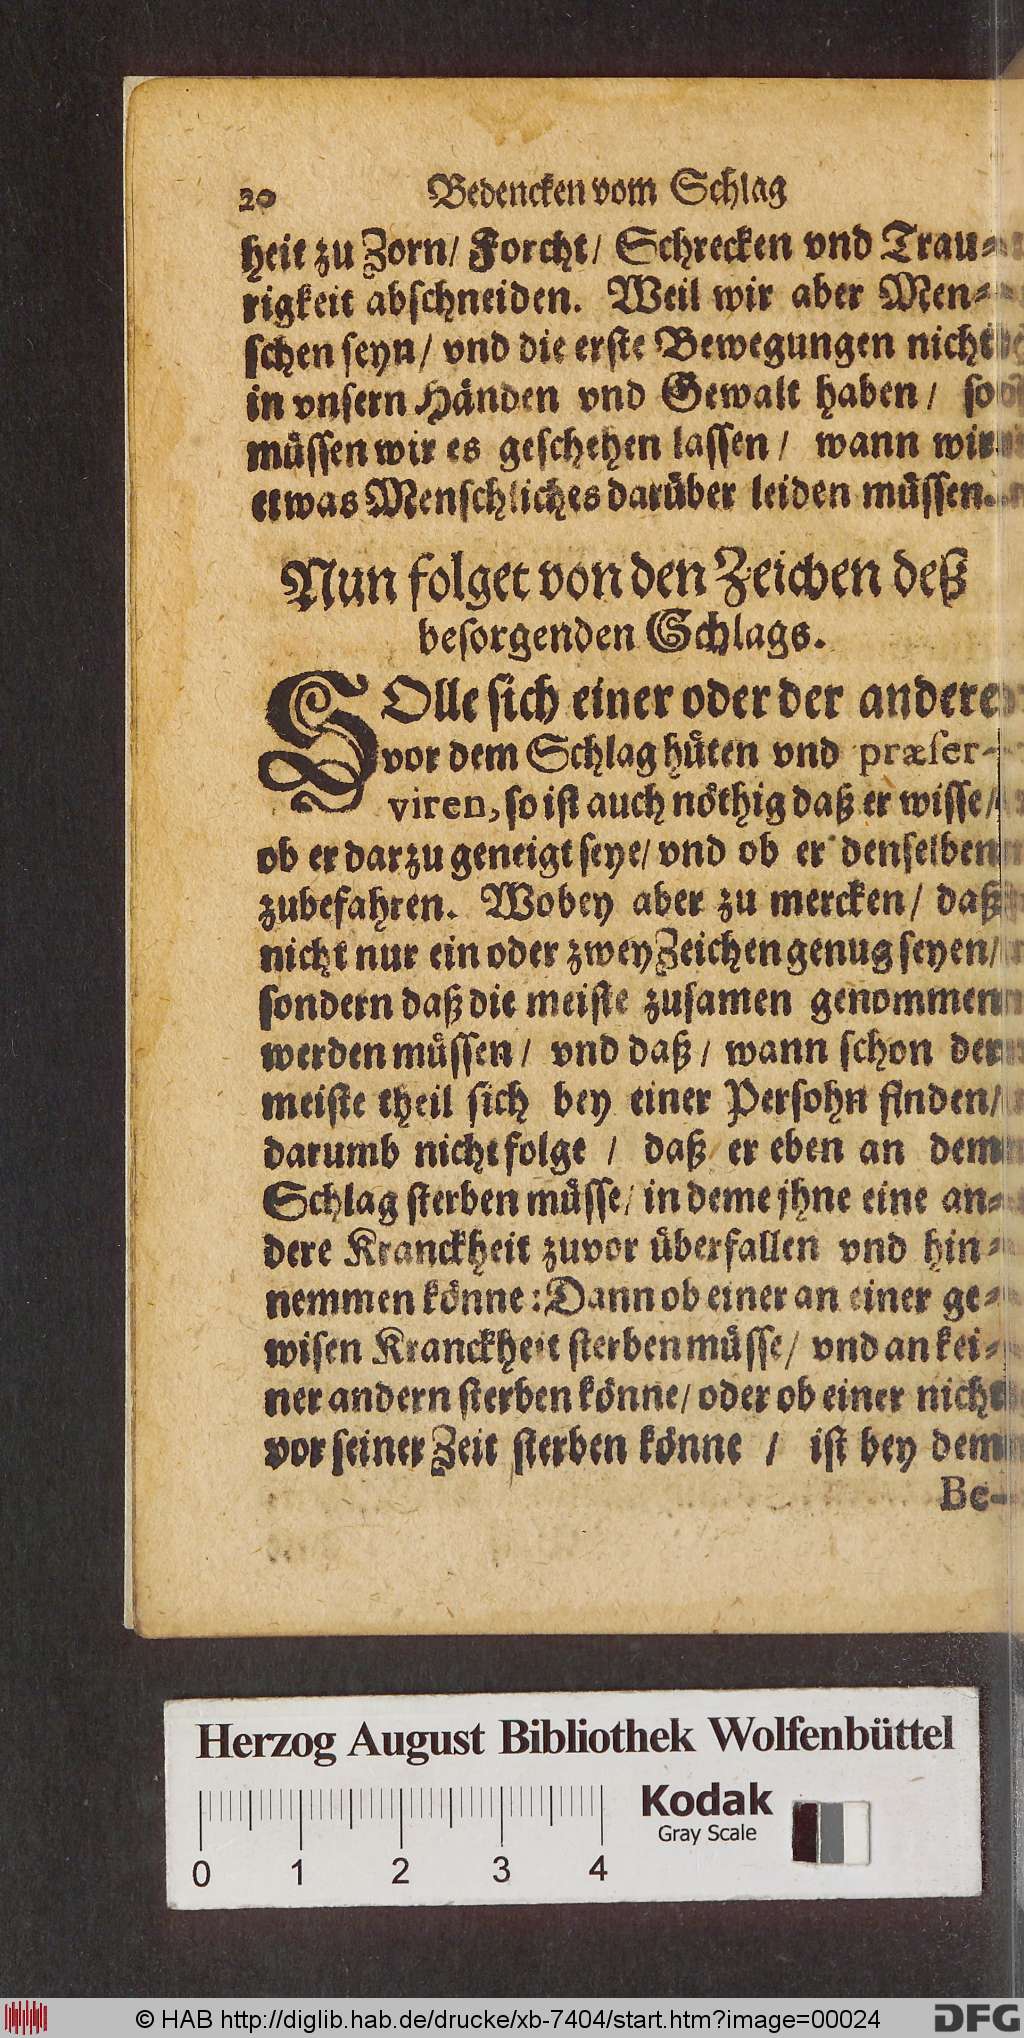 20 Bedencken vom Schlag
heit zu Zorn/ Forcht/ Schrecken vnd Trau-
rigkeit abschneiden. Weil wir aber Men-
schen seyn/ vnd die erste Bewegungen nicht
in vnsern Händen vnd Gewalt haben/ so
müssen wir es geschehen lassen/ wann wir
etwas Menschliches darüber leiden müssen.
Nun folget von den Zeichen deß
besorgenden Schlags.
SOlle sich einer oder der andere
vor dem Schlag hüten vnd præser-
viren, so ist auch nöthig daß er wisse/
ob er darzu geneigt seye/ vnd ob er denselben
zubefahren. Wobey aber zu mercken/ daß
nicht nur ein oder zwey Zeichen genug seyen/
sondern daß die meiste zusamen genommen
werden müssen/ vnd daß/ wann schon der
meiste theil sich bey einer Persohn finden/
darumb nicht folge/ daß er eben an dem
Schlag sterben müsse/ in deme jhne eine an-
dere Kranckheit zuvor überfallen vnd hin-
nemmen könne: Dann ob einer an einer ge-
wisen Kranckheit sterben müsse/ vnd an kei-
ner andern sterben könne/ oder ob einer nicht
vor seiner Zeit sterben könne / ist bey dem
Be-
Herzog August Bibliothek Wolfenbüttel
Kodak
Gray Scale
0 1 2 3 4
© HAB http://diglib.hab.de/drucke/xb-7404/start.htm?image=00024
DFG